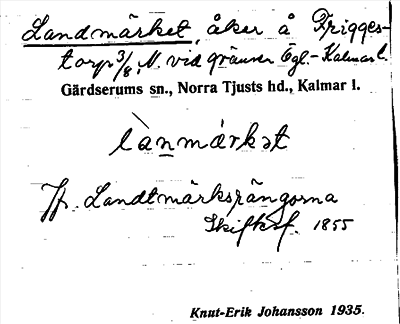 Landmärket, åker å Frigges-
torp 3/8, N. vid gränsen Ögl.-Kalmar l.
Gärdserums sn., Norra Tjusts hd., Kalmar l.
lànmárkət
Jf. Landtmärksängorna
Skiftesf. 1855
Knut-Erik Johansson 1935.